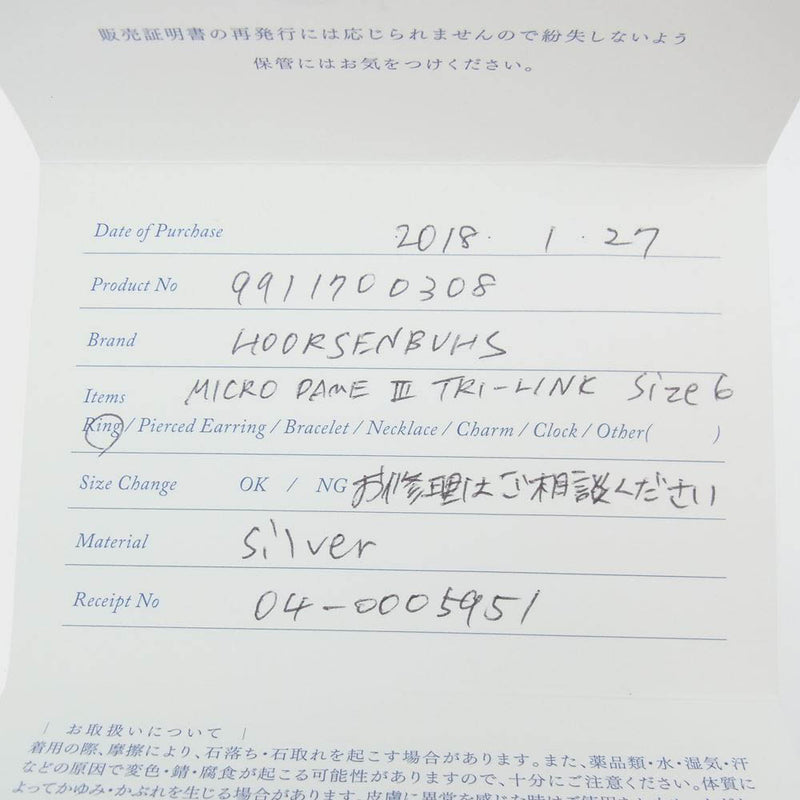 販売証明書の再発行には応じられませんので紛失しないよう
保管にはお気をつけください。
Date of Purchase 2018. 1. 27
Product No 9911700308
Brand HOORSENBUHS
Items MICRO DAME III TRI-LINK Size 6
Ring / Pierced Earring / Bracelet / Necklace / Charm / Clock / Other( )
Size Change OK / NG お修理はご相談ください
Material Silver
Receipt No 04-0005951
| お取扱いについて |
着用の際、摩擦により、石落ち・石取れを起こす場合があります。また、薬品類・水・湿気・汗
などの原因で変色・錆・腐食が起こる可能性がありますので、十分にご注意ください。体質に
よってかゆみ・かぶれを生じる場合があります。皮膚に異常を感じた時はご使用